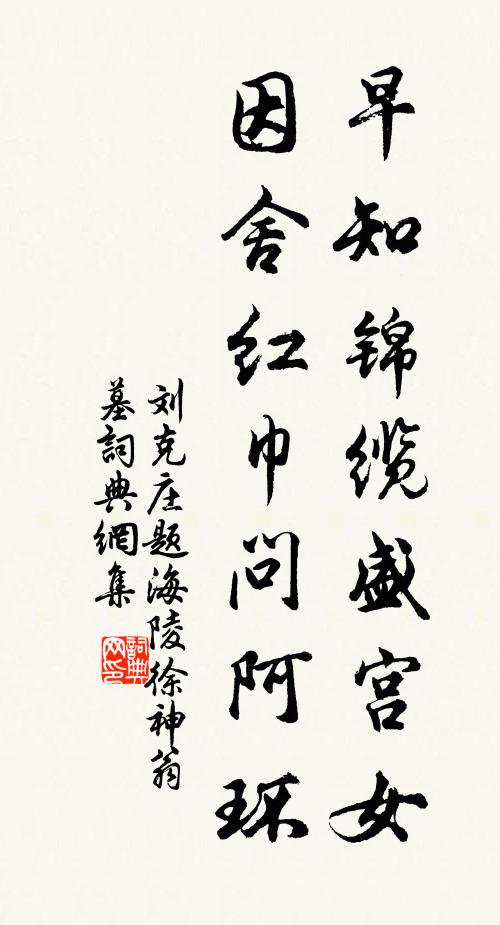 早知锦缆盛宫女
因舍红巾问阿环
刘克庄题海陵徐神翁
墓詞典網集
詞典网印